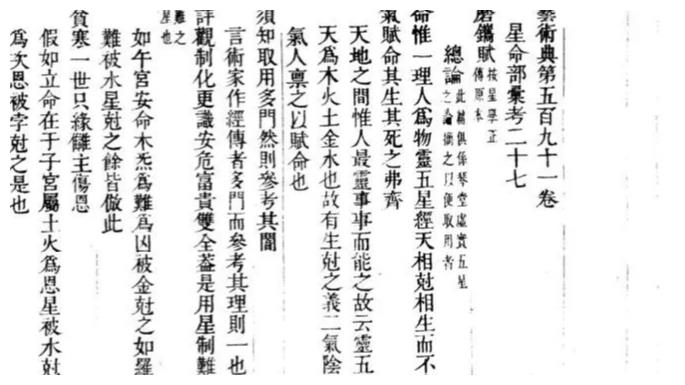 藝術典第五百九十一卷
星命部彙考二十七
磨鐫賦 按星學正傳原本
總論 此篇俱係琴堂虛實五星之論摘之以便取用者
命惟一理人爲物靈五星經天相尅相生而不
氣賦命其生其死之弗齊
天地之間惟人最靈事事而能之故云靈五
天爲木火土金水也故有生尅之義二氣陰
氣人稟之以賦命也
須知取用多門然則參考其閫
言術家作經傳者多門而參考其理則一也
詳觀制化更識安危富貴雙全葢是用星制難
難之星也
如午宮安命木炁爲難爲凶被金尅之如羅
難被水星尅之餘皆倣此
貧寒一世只緣讎主傷恩
假如立命在于子宮屬土火爲恩星被水尅
爲次恩被孛尅之是也